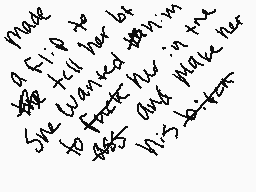 made
a flip to
the tell her bf
she wanted him
to fuck her in the
ass and make her
his bitch